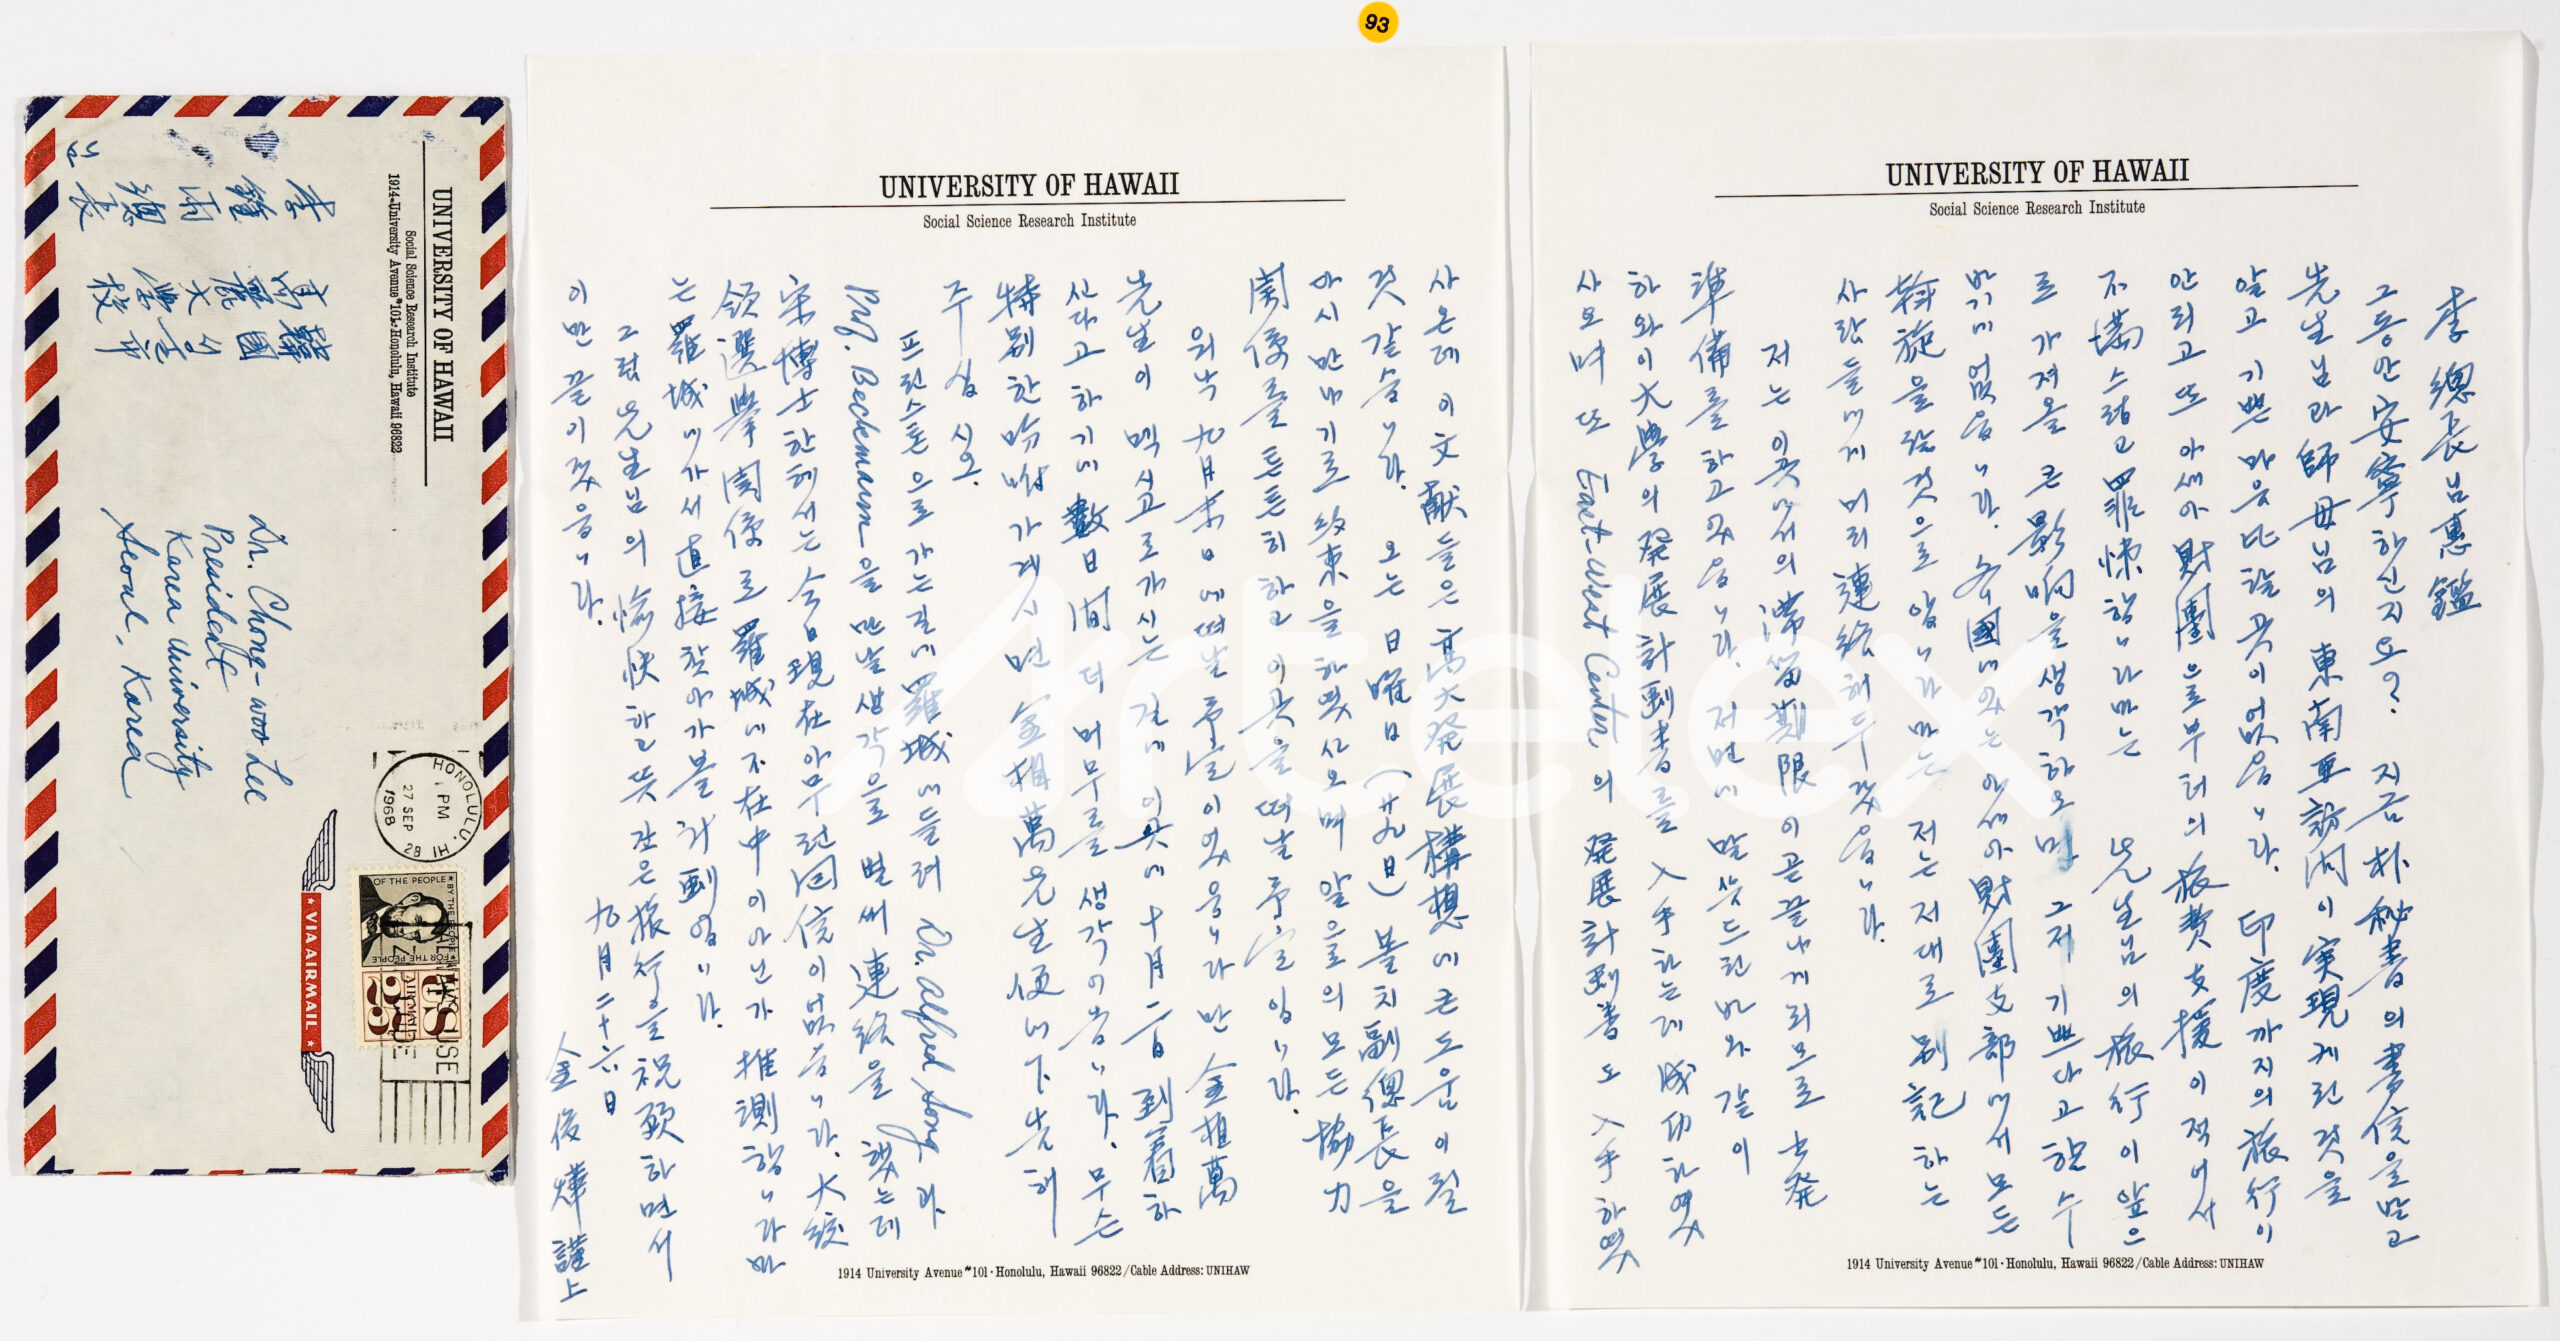 93
UNIVERSITY OF HAWAII
Social Science Research Institute
李總長님 惠鑑
그동안 安寧하신지요? 지금 朴秘書의 書信을 받고
先生님과 師母님의 東南亞訪問이 実現게 된 것을
알고 기쁜 마음 比할 곳이 없읍니다. 印度까지의 旅行이
안되고 또 아세아財團으로부터의 旅費支援이 적어서
不満스럽고 罪悚합니다마는 先生님의 旅行이 앞으
로 가져올 큰 影響을 생각하오면 그저 기쁘다고 할 수
밖에 없읍니다. 各國에 있는 아세아財團支部에서 모든
斡旋을 할 것으로 압니다마는 저는 저대로 別記하는
사람들에게 미리 連絡해 두겠읍니다.
저는 이곳에서의 滞留期限이 곧 끝나게 되므로 出発
準備를 하고 있읍니다. 저번에 말씀드린 바와 같이
하와이大學의 発展計劃書를 入手하는데 成功하였
사오며 또 East-West Center의 発展計劃書도 入手하였
1914 University Avenue #101 · Honolulu, Hawaii 96822/Cable Address: UNIHAW
UNIVERSITY OF HAWAII
Social Science Research Institute
사온데 이 文献들은 高大発展構想에 큰 도움이 될
것 같습니다. 오는 日曜日(廿九日) 몰치 副總長을
다시 만나기로 約束을 하였사오며 앞으로의 모든 協力
関係를 튼튼히 하고 이곳을 떠날 予定입니다.
원낙 九月末日에 떠날 予定이었읍니다만 金相萬
先生이 멕시고로 가시는 길에 이곳에 十月二日 到着하
신다고 하기에 數日間 더 머무를 생각이옵니다. 무슨
特別한 말씀이 계시면 金相萬先生便에 下告해
주십시오.
프린스톤으로 가는 길에 羅城에 들려 Dr. Alfred Song과
Prof. Beckmann을 만날 생각으로 벌써 連絡을 했는데
宋博士한테서는 今日現在 아무런 回信이 없읍니다. 大統
領選擧関係로 羅城에 不在中이 아닌가 推測합니다마
는 羅城에 가서 直接 찾아가 볼 計劃입니다.
그럼 先生님의 愉快하고 뜻 깊은 旅行을 祝願하면서
이만 끝이겠읍니다.
九月二十六日
金俊燁 謹上
1914 University Avenue #101 · Honolulu, Hawaii 96822/Cable Address: UNIHAW
UNIVERSITY OF HAWAII
Social Science Research Institute
1914 University Avenue #101 · Honolulu, Hawaii 96822
韓國 서울市
高麗大學校
李鍾雨 總長
님
Dr. Chong-woo Lee
President
Korea University
Seoul, Korea
HONOLULU,
PM
27 SEP
1968
OF THE PEOPLE ★ BY THE PEOPLE ★ FOR THE PEOPLE
US
25
★ VIA AIRMAIL ★
Artelex